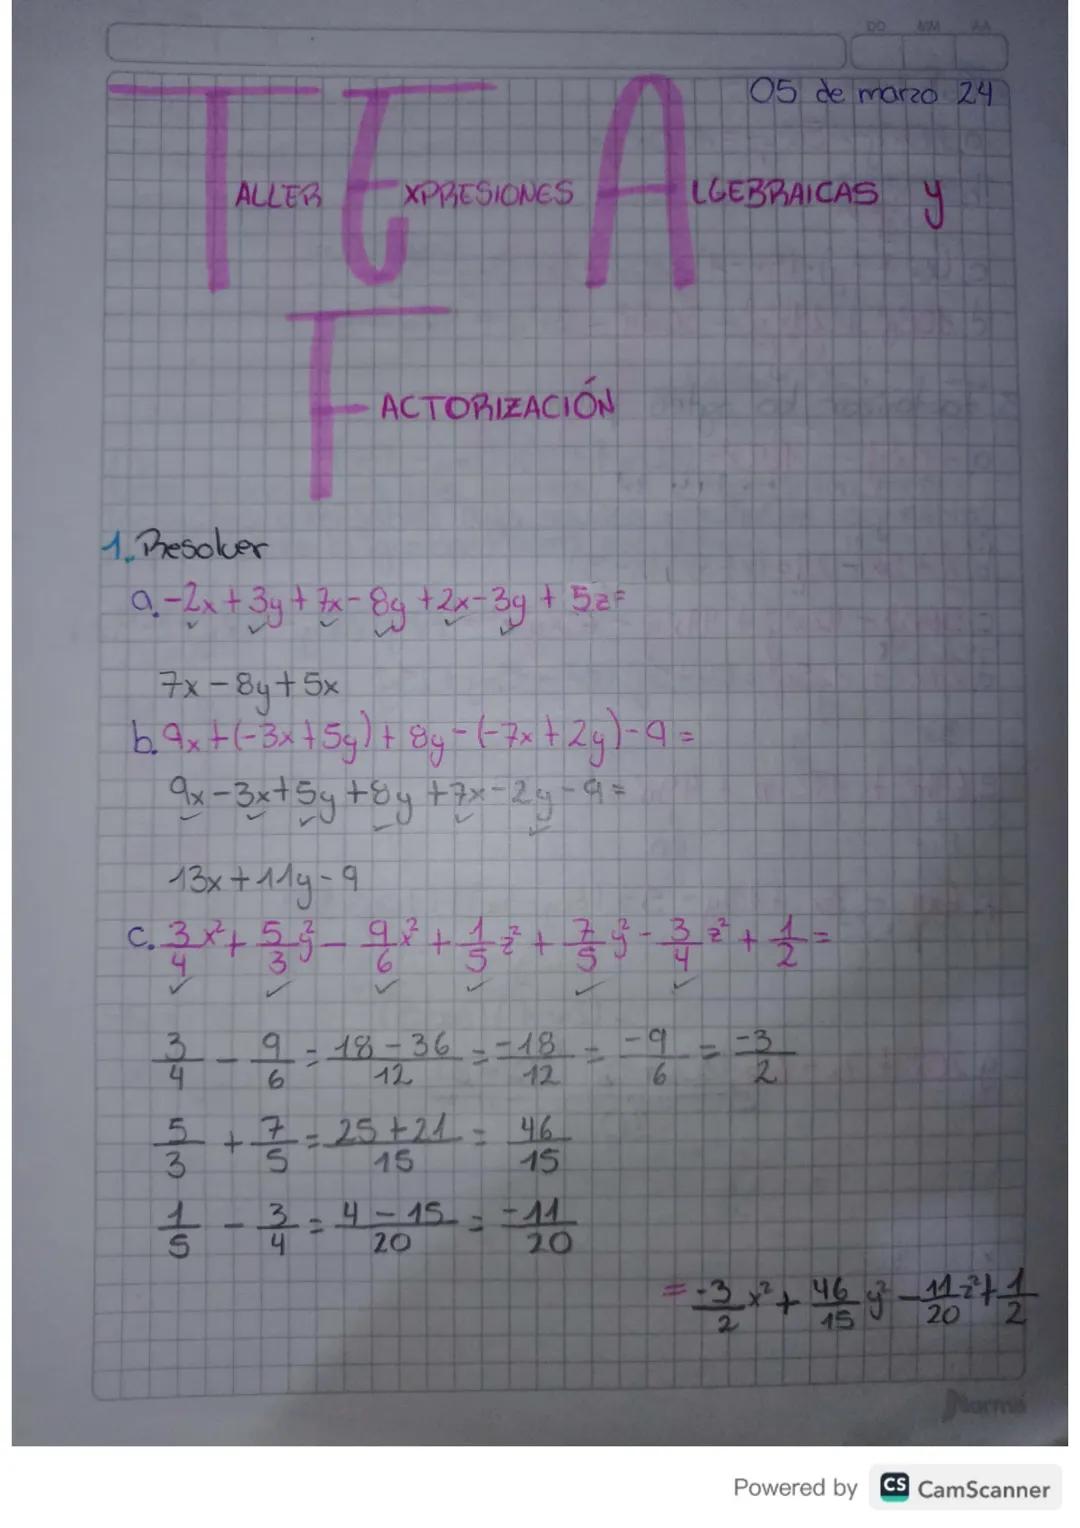 DD MM AA
05 de marzo 24
TALLER EXPRESIONES ALGEBRAICAS y
FACTORIZACIÓN
1. Resolver
a. -2x + 3y + 7x - 8y + 2x - 3y + 5z =
7x - 8y + 5x
b. 9x + (-3x + 5y) + 8y - (-7x + 2y) - 9 =
9x - 3x + 5y + 8y + 7x - 2y - 9 =
13x + 11y - 9
c. 3/4 x² + 5/3 y² - 9/6 x² + 1/5 z² + 7/5 y² - 3/4 z² + 1/2 =
3/4 - 9/6 = 18 - 36/12 = -18/12 = -9/6 = -3/2
5/3 + 7/5 = 25 + 21/15 = 46/15
1/5 - 3/4 = 4 - 15/20 = -11/20
= -3/2 x² + 46/15 y² - 11/20 z² + 1/2
Norma
Powered by CS CamScanner